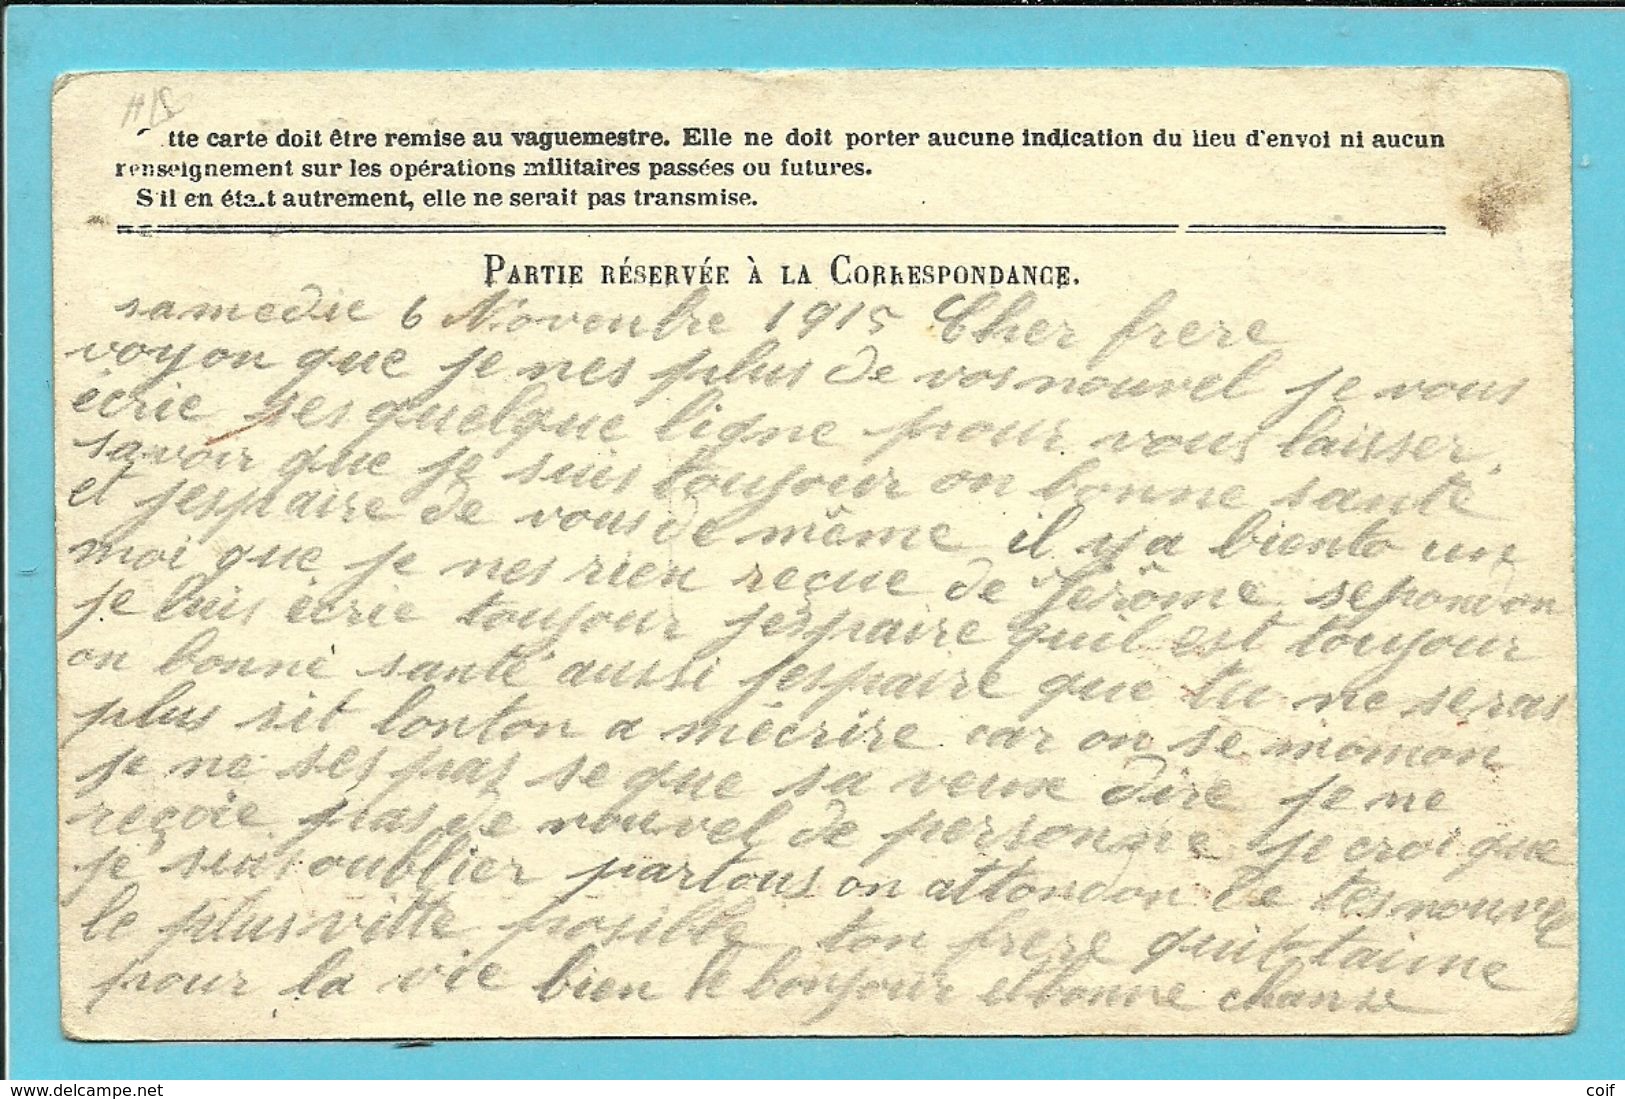 tte carte doit être remise au vaguemestre. Elle ne doit porter aucune indication du lieu d'envoi ni aucun
renseignement sur les opérations militaires passées ou futures.
S'il en était autrement, elle ne serait pas transmise.
PARTIE RÉSERVÉE À LA CORRESPONDANCE.
samedie 6 Novenbre 1915 Cher frere
voyon que je nes plus de vos nouvel je vous
écrie ses quelque ligne pour vous laisser
savoir que je suis toujour on bonne santé
et jespaire de vous de même il y a biento un
moi que je nes rien reçue de Jérôme sepondon
je luis écrie toujour jespaire quil est toujour
on bonne santé aussi jespaire que tu ne seras
plus sit lonton a mécrire car on se momon
je ne ses pas se que sa veux dire je ne
reçoie pas de nouvel de personne je croi que
je suis oublier partous on attondon de tes nouvel
le plus vitte posible ton frere qui t'aime
pour la vie bien le bonjour et bonne chanse
coif